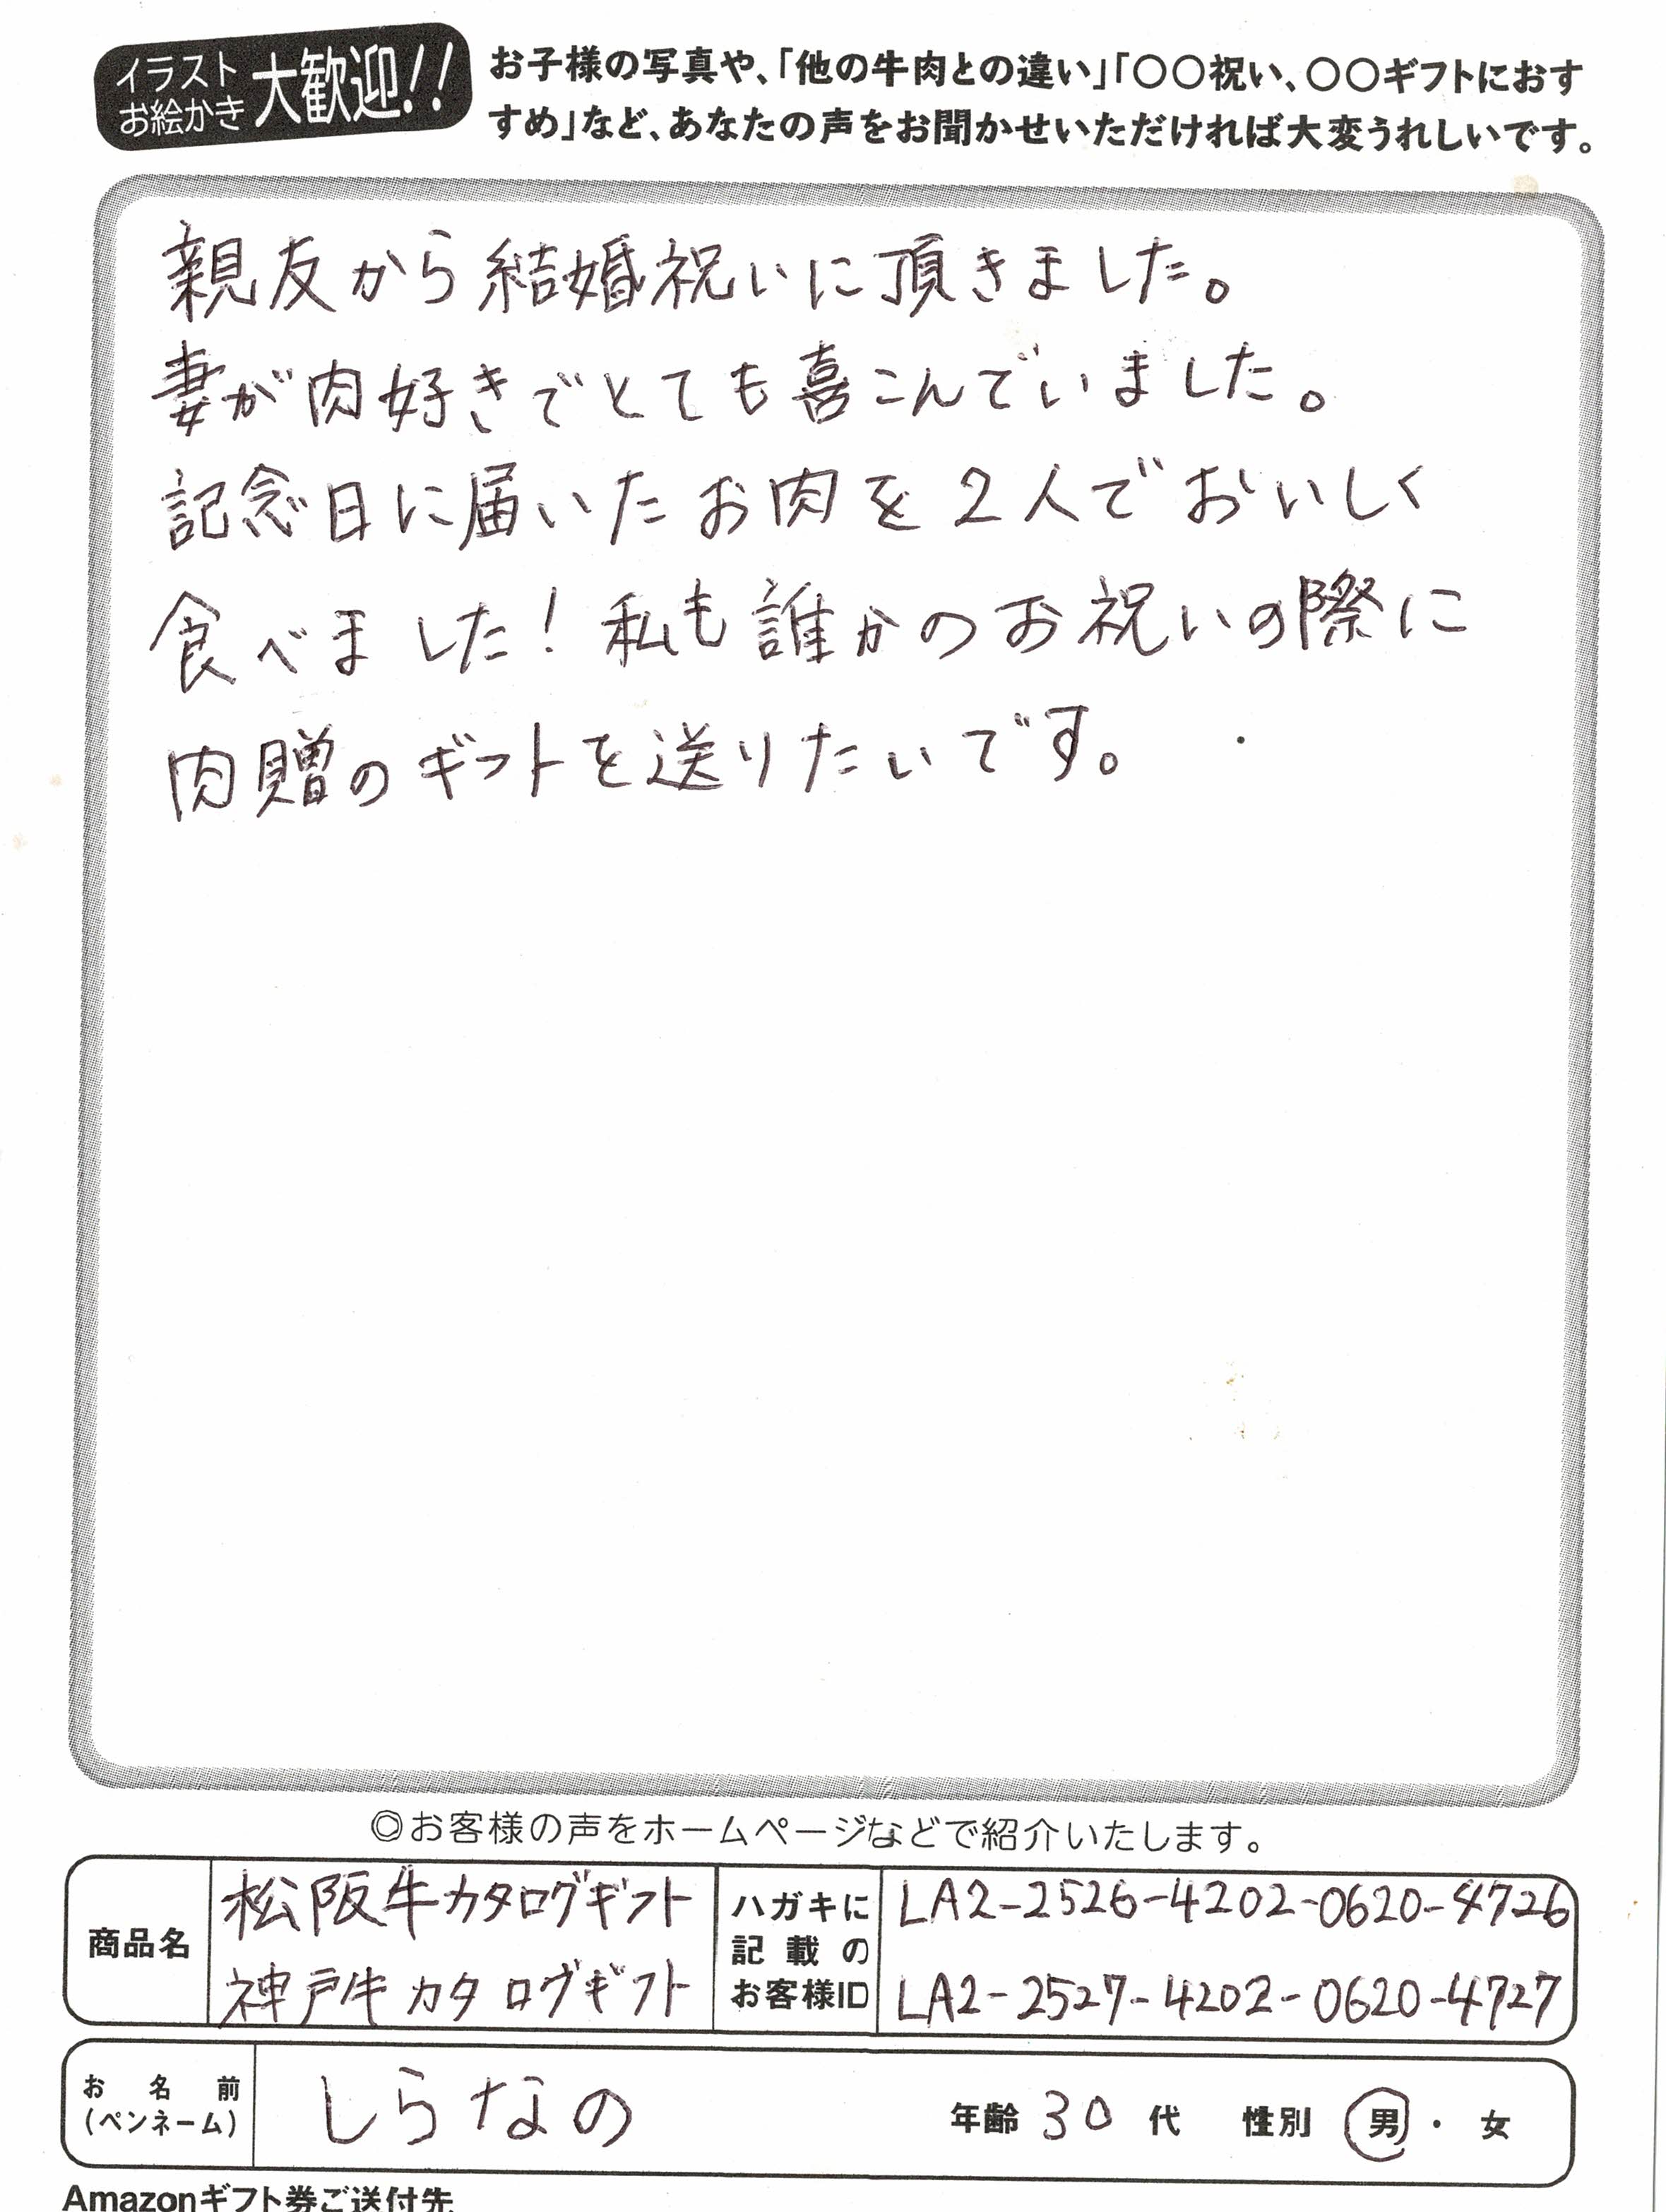 イラスト
お絵かき
大歓迎!!
お子様の写真や、「他の牛肉との違い」「〇〇祝い、〇〇ギフトにおす
すめ」など、あなたの声をお聞かせいただければ大変うれしいです。
親友から結婚祝いに頂きました。
妻が肉好きでとても喜こんでいました。
記念日に届いたお肉を2人でおいしく
食べました！私も誰かのお祝いの際に
肉贈のギフトを送りたいです。
◎お客様の声をホームページなどで紹介いたします。
商品名
松阪牛カタログギフト
神戸牛カタログギフト
ハガキに
記載の
お客様ID
LA2-2526-4202-0620-4726
LA2-2527-4202-0620-4727
お名前
(ペンネーム)
しらなの
年齢 30 代 性別 男・女
Amazonギフト券ご送付先